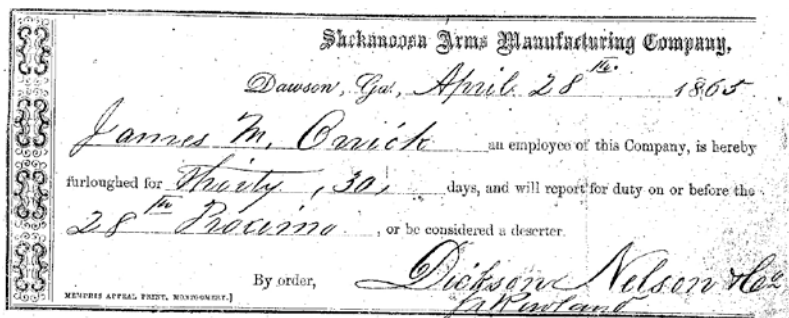 Shekanoosa Arms Manufacturing Company,
Dawson, Ga., April 28th. 1865
James M. Orrick an employee of this Company, is hereby
furloughed for Thirty, 30, days, and will report for duty on or before the
28th Proximo, or be considered a deserter.
By order, Dickson Nelson & Co
Rowland
MEMPHIS APPEAL PRINT, MONTGOMERY.]